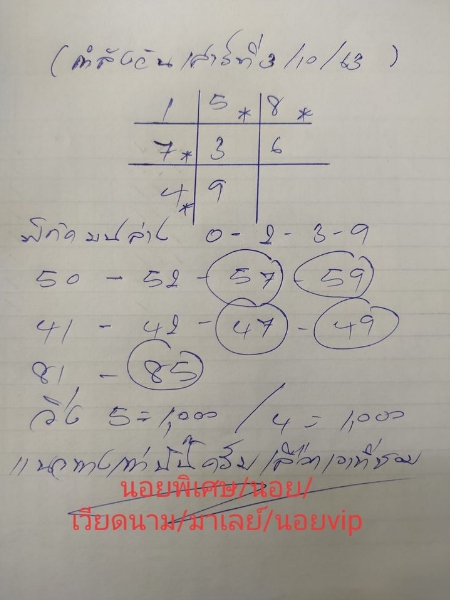 (กำลังวันเสาร์ที่ 3/10/63)
1 5* 8*
7* 3 6
4* 9
พิกัดบนล่าง 0-2-3-9
50 - 52 - 57 - 59
41 - 42 - 47 - 49
81 - 85
วิ่ง 5=1,000 / 4=1,000
แนวทางเท่านั้นครับ เลือกเอาที่ชอบ
นอยพิเศษ/นอย/
เวียดนาม/มาเลย์/นอยvip